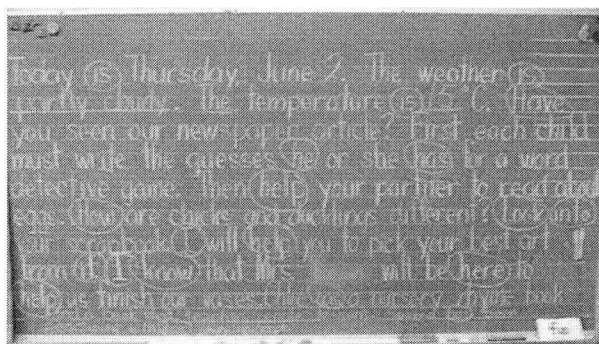 Today is Thursday, June 2. The weather is
partly cloudy. The temperature is 15°C. Have
you seen our newspaper article? First each child
must write the guesses he or she has for a word
detective game. Then help your partner to read about
eggs. How are chicks and ducklings different? Look
your scrapbook. I will help you to pick your best art
from it. I know that Mrs. will be here to
help us finish our vases. nursery rhyme book